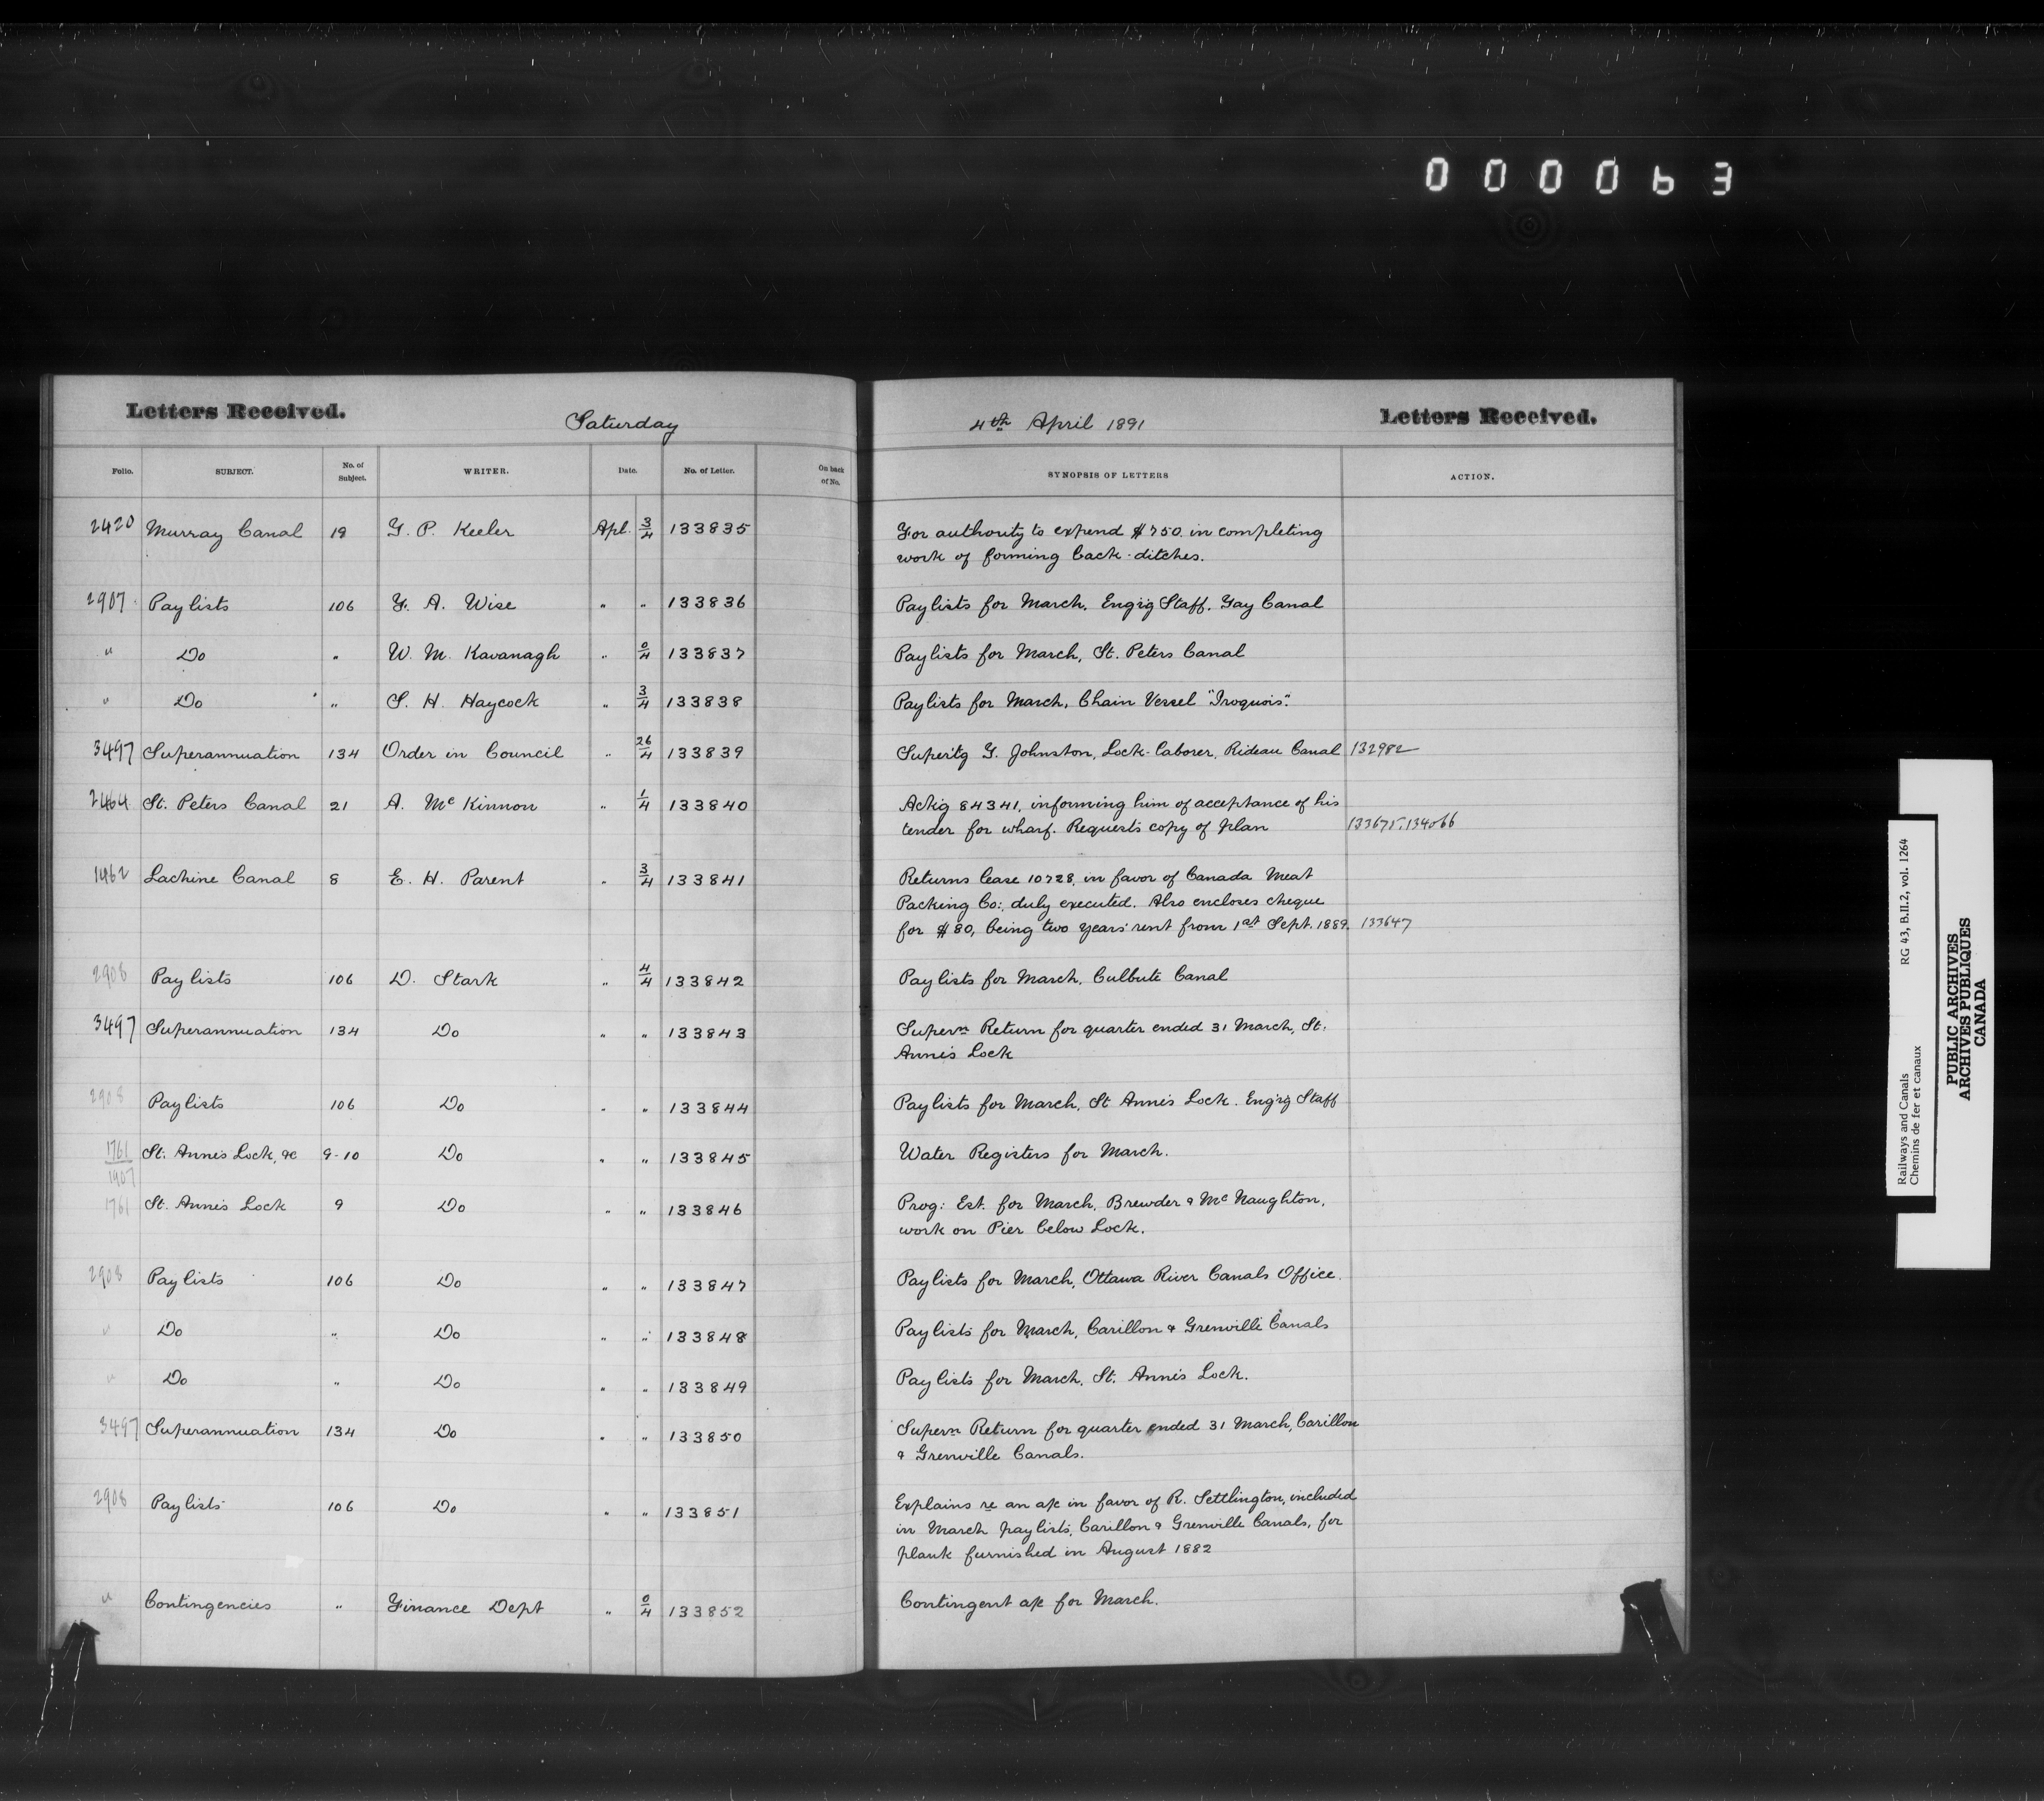 000063
Letters Received.
Saturday
4th April 1891
Letters Received.
Folio. SUBJECT. No. of Subject. WRITER. Date. No. of Letter. On back of No. SYNOPSIS OF LETTERS ACTION.
2420 Murray Canal 19 G. P. Keeler Apl. 3/4 133835 For authority to expend $750. in completing
work of forming back-ditches.
2907 Paylists 106 F. A. Wise " " 133836 Paylists for March, Eng'rg Staff, Tay Canal
" Do " W. M. Kavanagh " 0/4 133837 Paylists for March, St. Peters Canal
" Do " S. H. Haycock " 3/4 133838 Paylists for March, Chain Vessel "Iroquois".
3497 Superannuation 134 Order in Council " 26/4 133839 Super'tg G. Johnston, Lock-laborer, Rideau Canal 132982
2464 St. Peters Canal 21 A. McKinnon " 1/4 133840 Ack'g 84341, informing him of acceptance of his
tender for wharf. Requests copy of plan 133675, 134066
1462 Lachine Canal 8 E. H. Parent " 3/4 133841 Returns lease 10728, in favor of Canada Meat
Packing Co:, duly executed. Also encloses cheque
for $80, being two years' rent from 1st Sept. 1889. 133647
2908 Paylists 106 D. Stark " 4/4 133842 Paylists for March, Culbute Canal
3497 Superannuation 134 Do " " 133843 Supern Return for quarter ended 31 March, St.
Anne's Lock
2908 Paylists 106 Do " " 133844 Paylists for March, St Anne's Lock. Eng'rg Staff
1761/1907 St. Anne's Lock, &c 9-10 Do " " 133845 Water Registers for March.
1761 St. Anne's Lock 9 Do " " 133846 Prog: Est. for March, Brewder & McNaughton,
work on Pier below Lock.
2908 Paylists 106 Do " " 133847 Paylists for March, Ottawa River Canals Office.
" Do " Do " " 133848 Paylists for March, Carillon & Grenville Canals
" Do " Do " " 133849 Paylists for March, St. Anne's Lock.
3497 Superannuation 134 Do " " 133850 Supern Return for quarter ended 31 March, Carillon
& Grenville Canals.
2908 Paylists 106 Do " " 133851 Explains re an a/c in favor of R. Settlington, included
in March paylists, Carillon & Grenville Canals, for
plank furnished in August 1882
" Contingencies " Finance Dept " 0/4 133852 Contingent a/c for March.
Railways and Canals RG 43, B.II.2, vol. 1264
Chemins de fer et canaux
PUBLIC ARCHIVES
ARCHIVES PUBLIQUES
CANADA